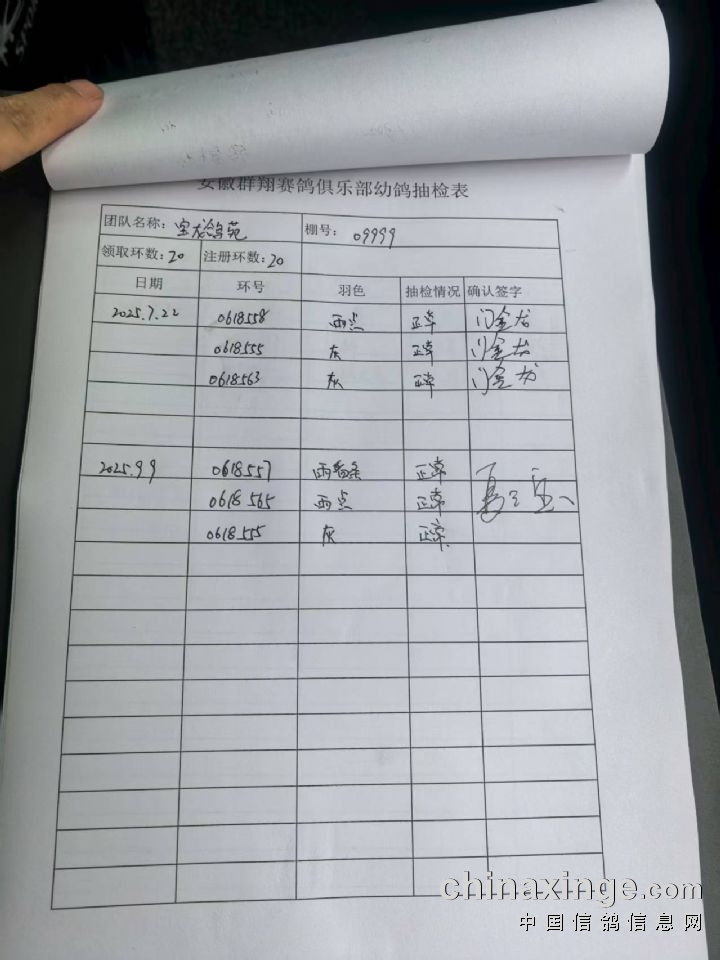 安徽群翔赛鸽俱乐部幼鸽抽检表
团队名称: 宝龙鸽苑 棚号: 09999
领取环数: 20 注册环数: 20
日期 环号 羽色 抽检情况 确认签字
2025.7.22 0618558 雨点 正常 闫金龙
0618555 灰 正常 闫金龙
0618563 灰 正常 闫金龙
2025.9.9 0618557 雨白条 正常
0618565 雨点 正常
0618555 灰 正常
chinaxinge.com
中国信鸽信息网